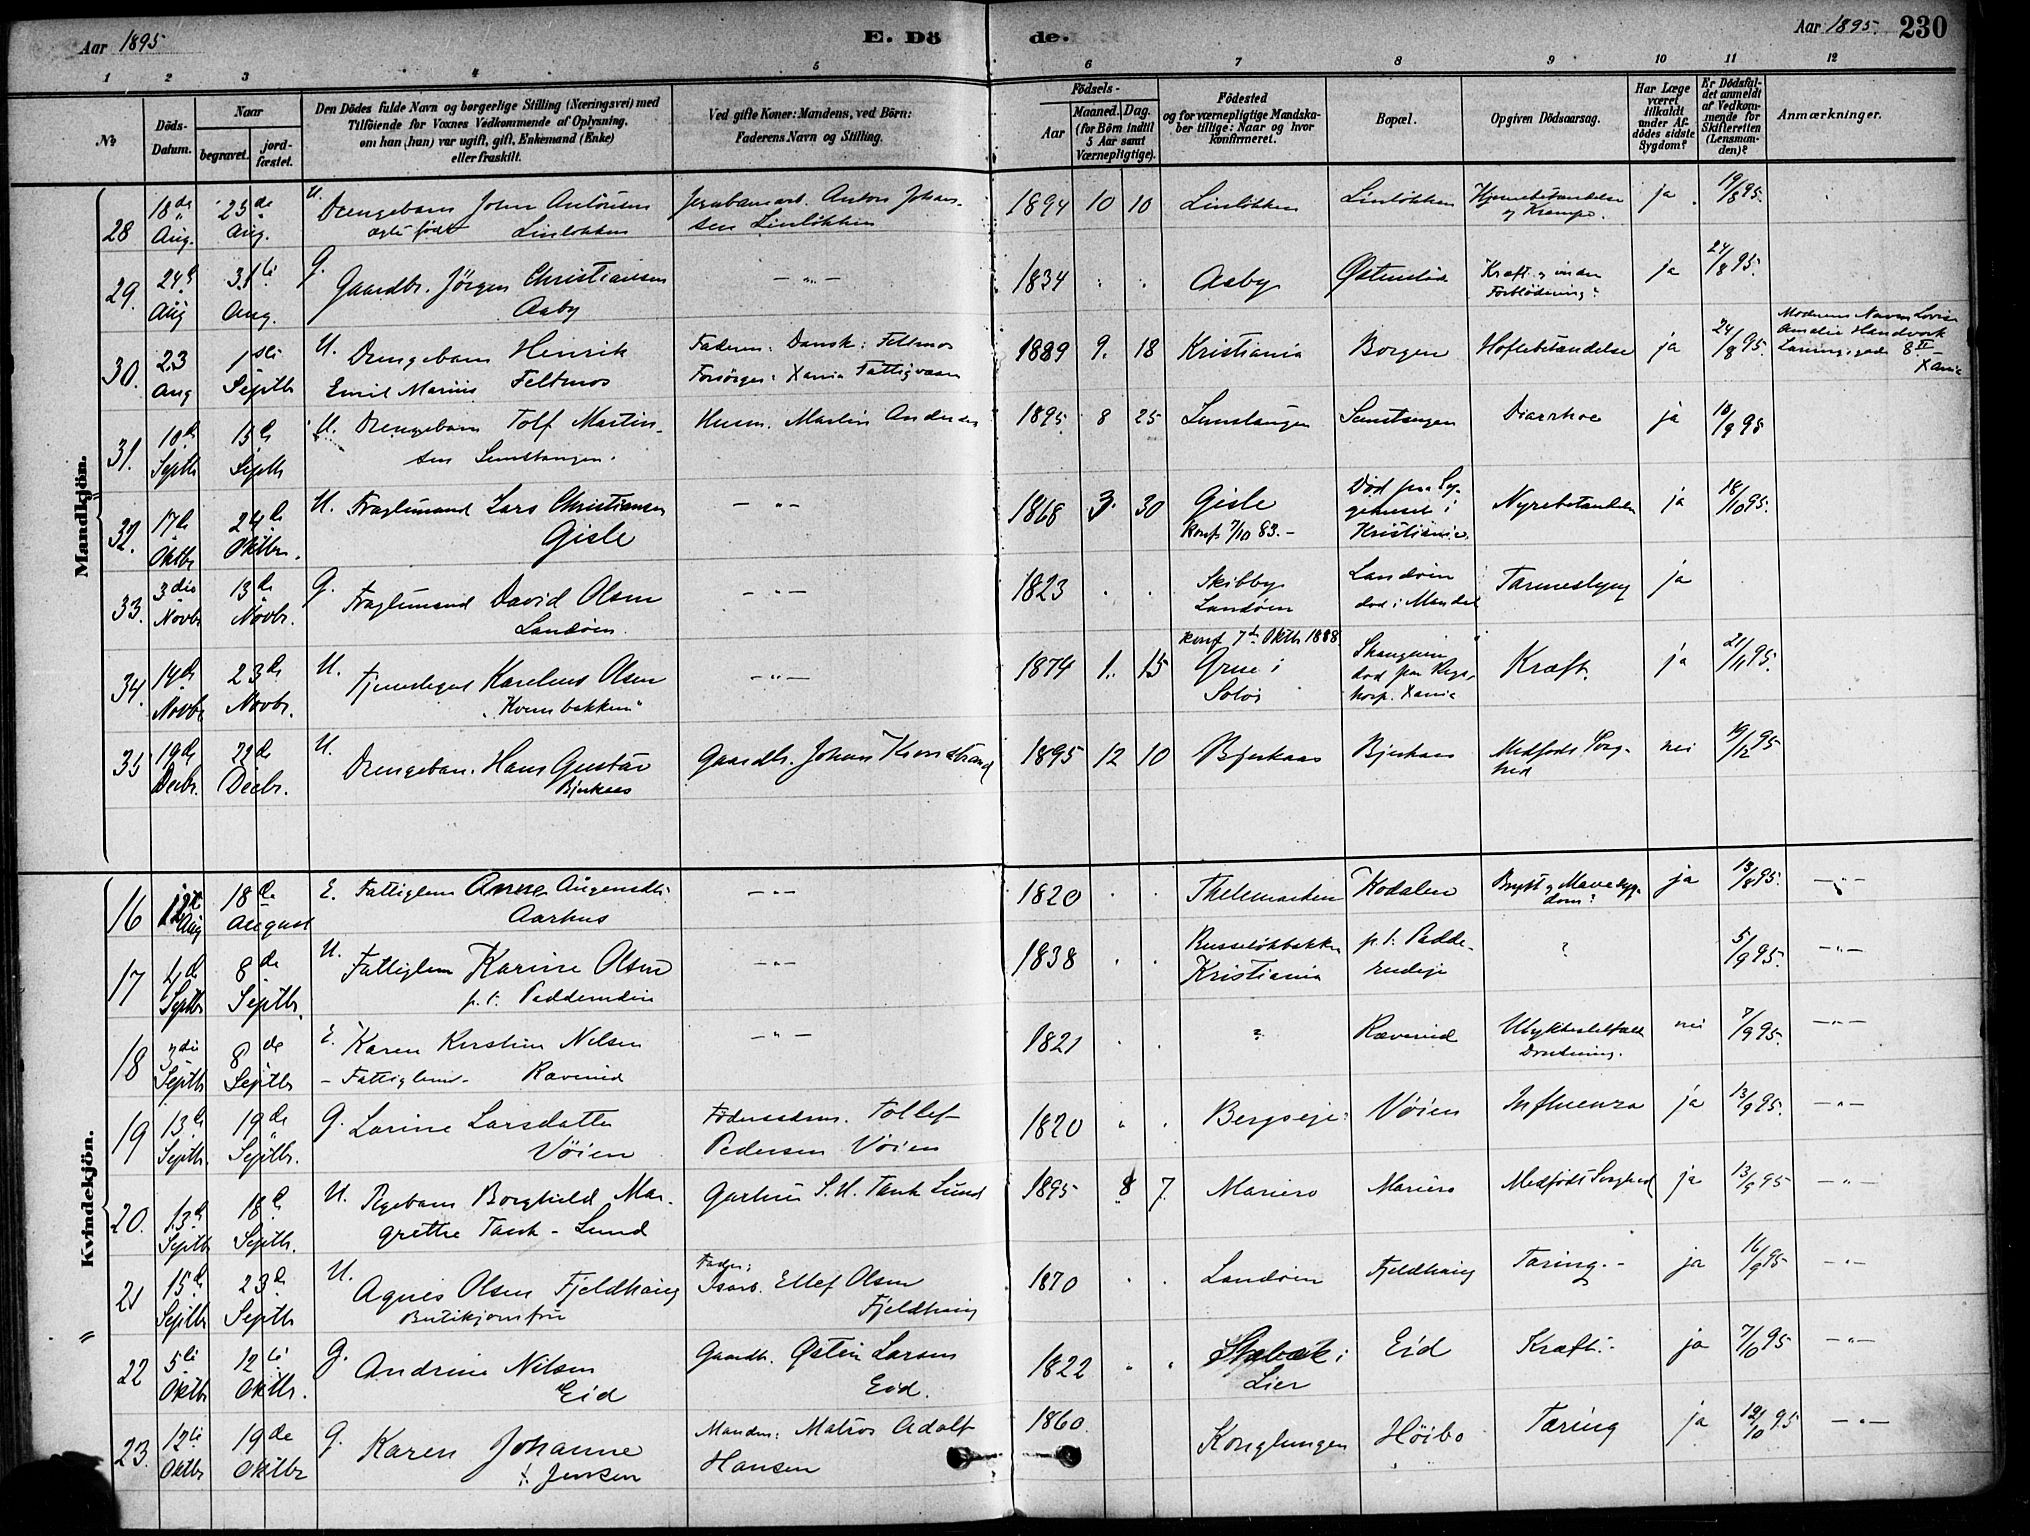 Aar 1895
E. Dö
de.
Aar 1895. 230
1 2 3 4 5 6 7 8 9 10 11 12
No
Döds-Datum.
Naar
begravet.
jordfæstet.
Den Dödes fulde Navn og borgerlige Stilling (Næringsvei) med
Tilföiende for Voxnes Vedkommende af Oplysning,
om han (hun) var ugift, gift, Enkemand (Enke)
eller fraskilt.
Ved gifte Koner: Mandens, ved Börn:
Faderens Navn og Stilling.
Födsels-
Aar
Maaned. Dag.
(for Börn indtil
5 Aar samt
Værnepligtige).
Födested
og for værnepligtige Mandska-
ber tillige: Naar og hvor
konfirmeret.
Bopæl.
Opgiven Dödsaarsag.
Har Læge
været
tilkaldt
under Af-
dödes sidste
Sygdom?
Er Dödsfal-
det anmeldt
af Vedkom-
mende for
Skifteretten
(Lensman-
den)?
Anmærkninger.
Mandkjön.
28 18de Aug. 23de Aug. U. Drengebarn John Antonsen Linløkken Jernbanearb. Anton Johansen Linløkken 1894 10 10 Linløkken Linløkken Hjernebetændelse og Krampe. ja 19/8 95.
29. 24de Aug 31te Aug. G. Gaardbr. Jörgen Christiansen Aaby — " — 1834 Aaby Østenstad Kræft Forblödning ja 24/8 95.
30. 23 Aug 1ste Septb U. Drengebarn Henrik Emil Marius Feltmos Faderen: Dansk: Feltmos Forsörges: Xania Fattigvæsen 1889 9. 18 Kristiania Borgen Hoftebetændelse ja 24/8 95. Moderens Navn Lovise Amalie Xania
31. 10de Septb 15de Septb U. Drengebarn Tolf Martinsen Husm. Martin Andersen 1895 8 25 Diarrhoe ja 10/9 95
32. 17de Oktbr 24de Oktbr. U. Lars Christiansen Gisle — " — 1868 3. 30 Gisle konf. 7/10 83. — Død paa Sygehuset i Kristiania Nyrebetændelse ja 18/10 95.
33. 3die Novbr 13de Novbr. G. David Olsen Landøen. — " — 1823 Skibby Landøen Landøen død i Mandal ja
34. 14de Novbr 23de Novbr. U. Karelius Olsen "Kvernbakken" — " — 1874 1. 15 konf 7de Oktb 1888. Grue i Solør død paa Rigshosp. Xania Kræft. ja 21/11 95.
35 19de Decbr. 22de Decbr. U. Drengebarn Hans Gustav Bjerkaas Gaardbr. Johan 1895 12 10 Bjerkaas Bjerkaas Medfödt Svaghed nei 19/12 95
Kvindekjön.
16 12te Aug 18de August E. Fattiglem Anne Aarhus — " — 1820 Thelemarken Kodalen Bryst og Mavesygdom ja 13/8 95. — " —
17 4de Septbr 8de Septbr. U. Fattiglem Karine Olsen — " — 1838 Russeløkbakken Kristiania ? 5/9 95. — " —
18 3die Septb 8de Septb E. Karen Kirstine Nilsen — Fattiglem — Ravnsud — " — 1821 ? Drukning. nei 7/9 95. — " —
19 13de Septb. 19de Septbr. G. Larine Larsdatter Vøien Tollef Pedersen Vøien 1820 Vøien Influenza ja 13/9 95. — " —
20. 13de Septb 18de Septb. U. Pigebarn Borghild Margrethe Tank-Lund Gartner S. U. Tank Lund 1895 8 7 Mariero Mariero Medfödt Svaghed ja 13/9 95 — " —
21 15de Septb 23de Septb U. Agnes Olsen Fjeldhaug Butikjomfru Fader: Ellef Olsen Fjeldhaug 1870 Landøen Fjeldhaug Tæring. — ja 16/9 95 — " —
22 5te Oktb 12te Oktb. G. Andrine Nilsen Eid Gaardb. Østen Larsen Eid. 1822 Lier Eid Kræft. ja 7/10 95 — " —
23. 12te Oktbr 19de Oktbr G. Karen Johanne f. Jensen Manden: Matros Adolf Hansen 1860 Konglungen Høibo Tæring ja 12/10 95 — " —